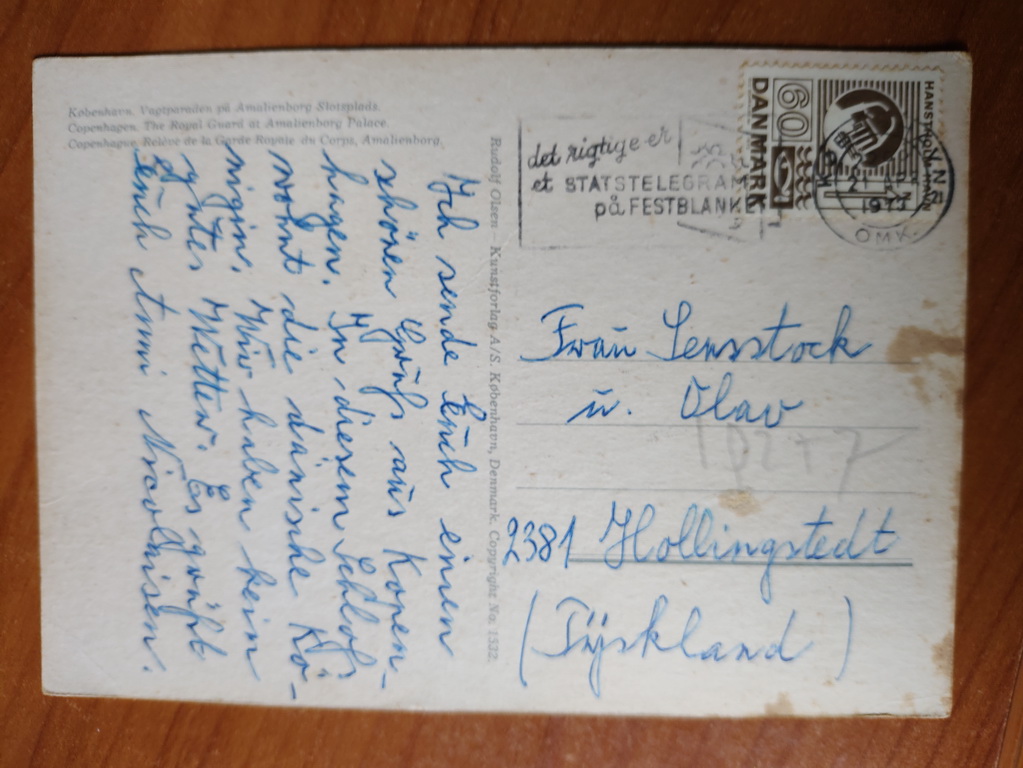 København. Vagtparaden på Amalienborg Slotsplads.
Copenhagen. The Royal Guard at Amalienborg Palace.
Copenhague. Relève de la Garde Royale du Corps, Amalienborg.
Ich sende Euch einen
schönen Gruß aus Kopen-
hagen. In diesem Schloß
wohnt die dänische Kö-
nigin. Wir haben kein
gutes Wetter. Es grüßt
Euch Anni Nicolaisen.
Rudolf Olsen - Kunstforlag A/S. København, Denmark. Copyright No. 1332.
det rigtige er
et STATSTELEGRAM
på FESTBLANKET
60
DANMARK
OMK.
Frau Sensstock
u. Olav
2381 Hollingstedt
(Tyskland)